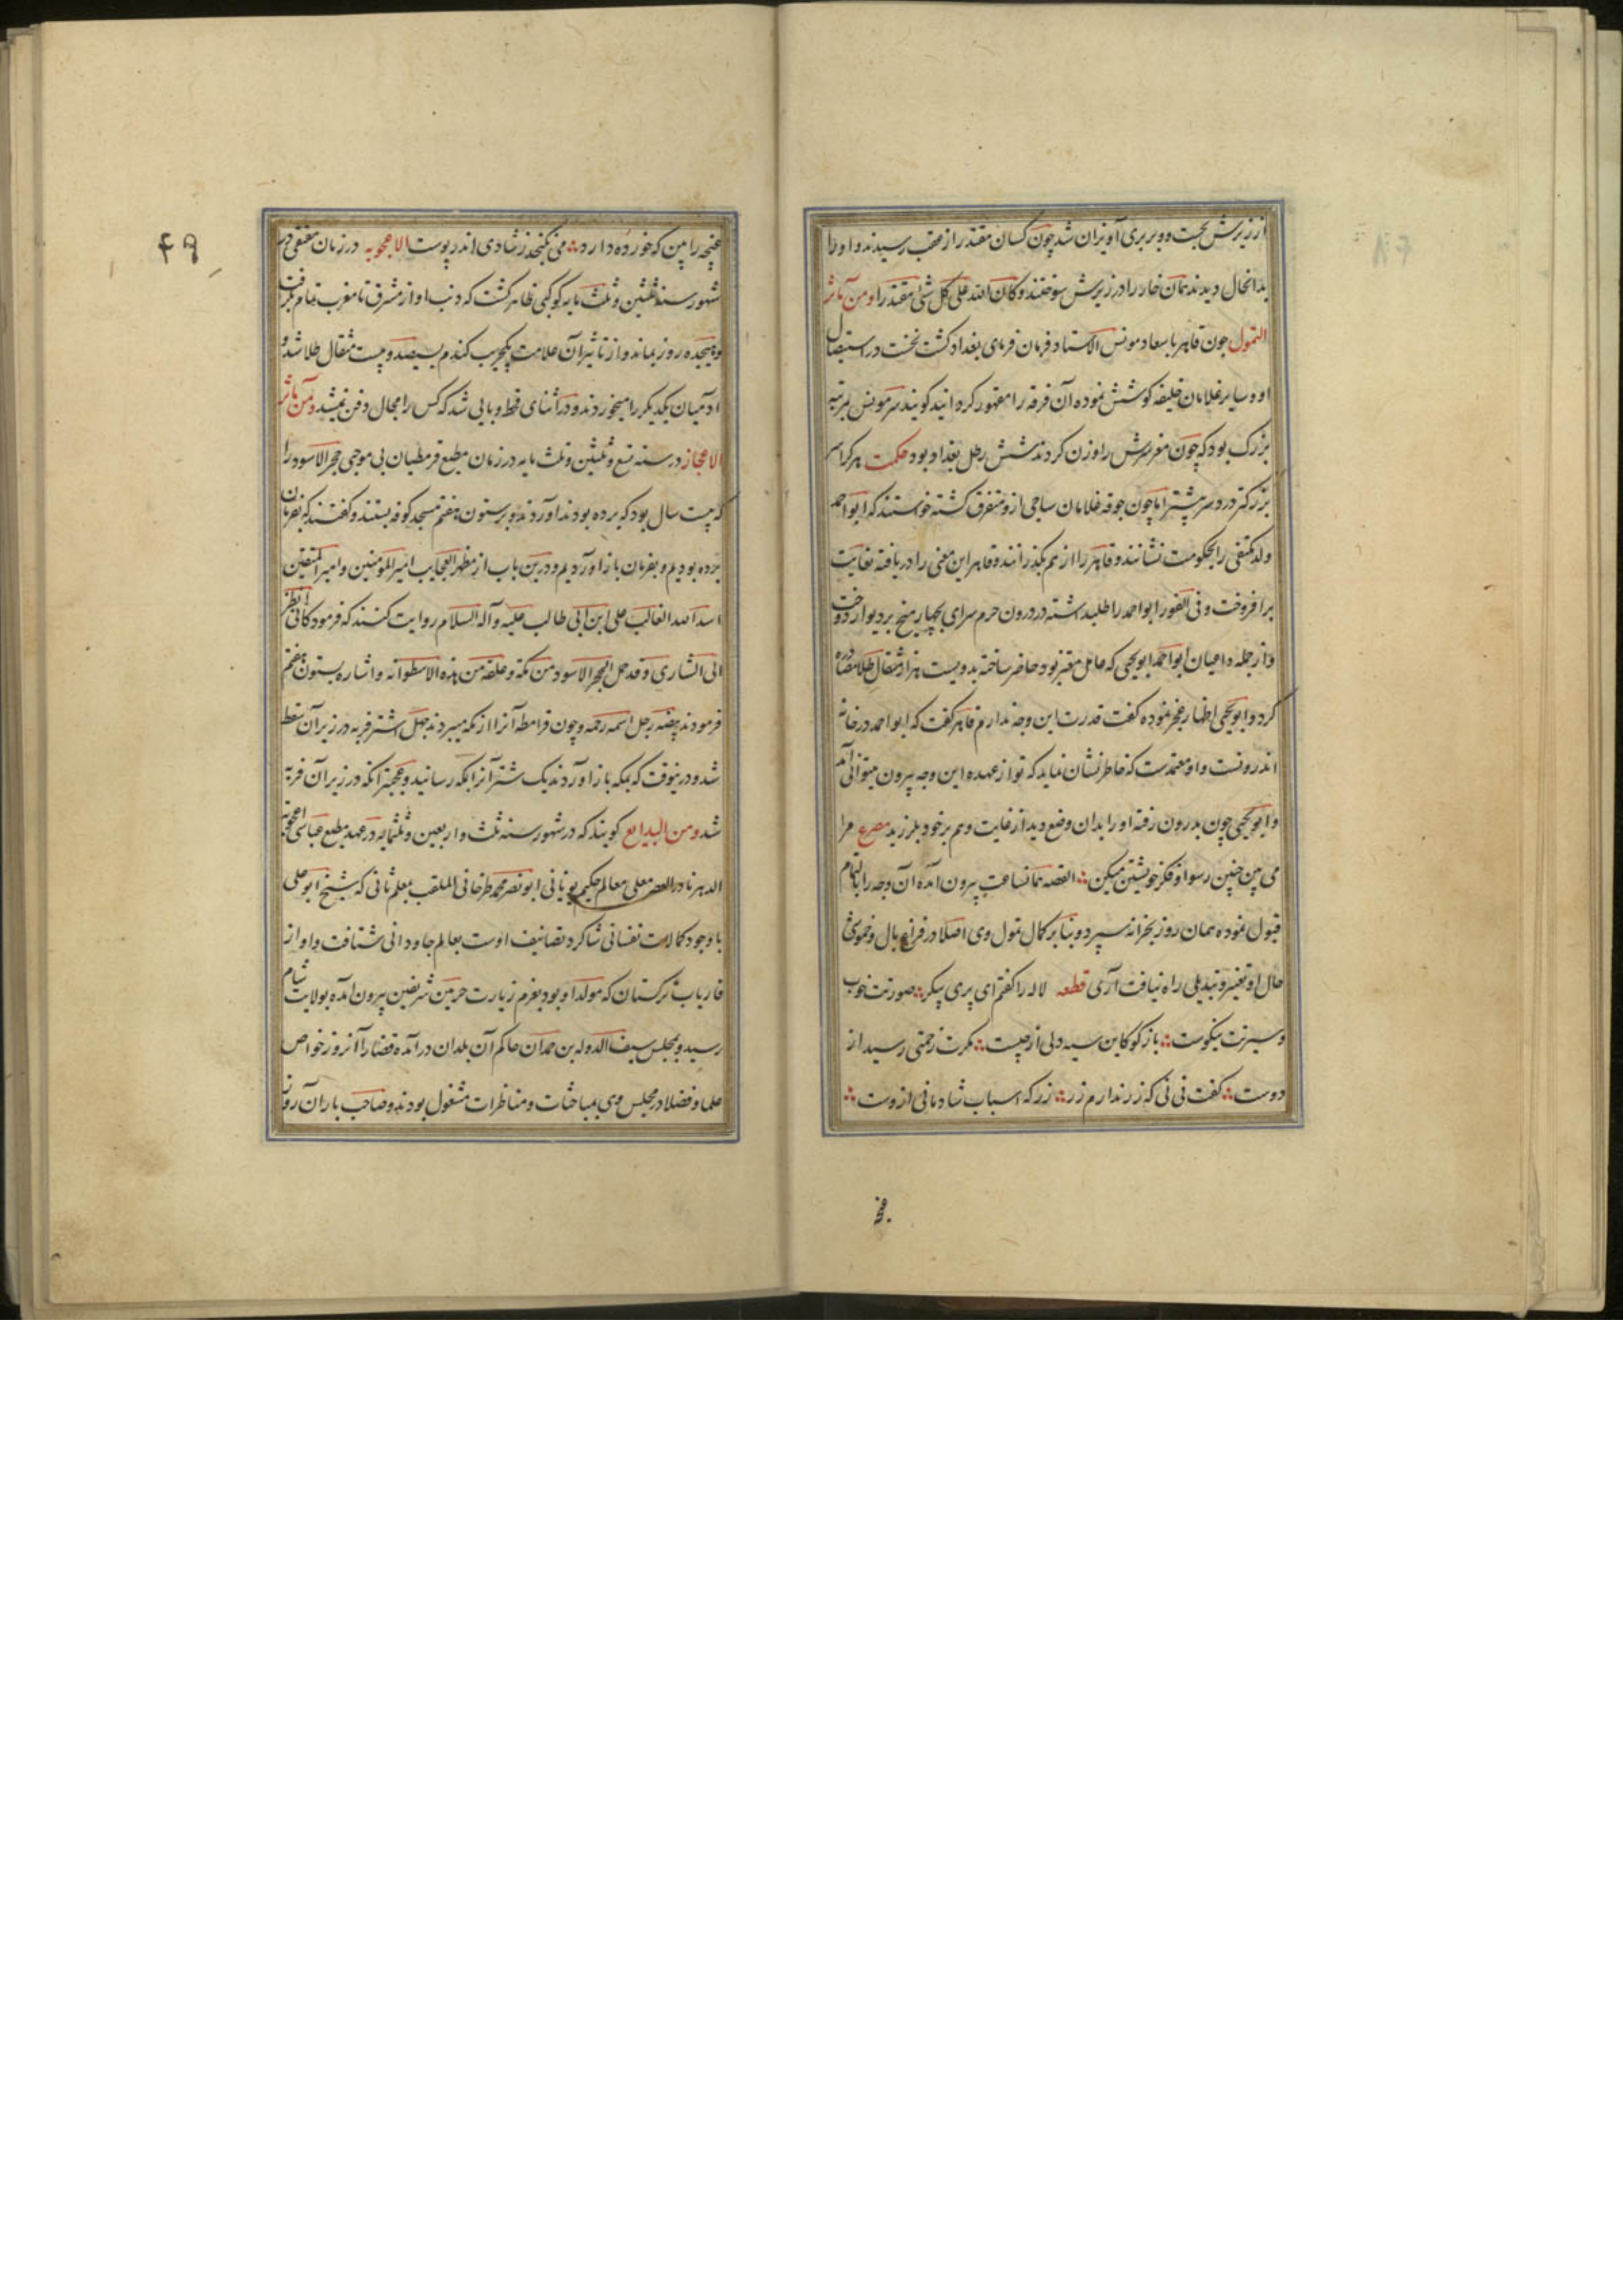 از زیرش بجست و وبر بری آویزان شد چون کسان مقتدر از عقب رسیدند و او را
بدانحال دیدند همان خار را در زیرش سوختند و کان الله علی کل شیٔ مقتدرا و من مآثر
التمول چون قاهر باسعاد مونس الاستاد فرمان فرمای بغداد کشت نخست در استیصال
او و سایر غلامان خلیفه کوشش نموده آن فرقه را مقهور کردانید کویند سر مونس بمرتبه
بزرک بود که چون مغز سرش را وزن کردند شش رطل بغداد بود حکمت هر کرا سر
بزرکتر درد سر بیشتر اما چون جوقه غلامان ساجی ازو متفرق کشته خواستند که ابو احمد
ولد مکتفی را بحکومت نشانند و قاهر را از هم بگذرانند و قاهر این معنی را دریافته بغایت
برافروخت و فی الفور ابو احمد را طلبداشته در درون حرم سرای بچهار میخ بر دیوار دوخت
و از جمله داعیان ابو احمد ابو یحیی که عامل معتبر بود حاضر ساخته بدویست هزار مثقال طلا مصادره
کرد و ابو یحیی اظهار عجز نموده کفت قدرت این وجه ندارم قاهر کفت که ابو احمد در خانه
اندرونست و او معتمدست که خاطر نشان نماید که تو از عهده این وجه بیرون میتوانی آمد
و ابو یحیی چون بدرون رفته او را بدان وضع دید از غایت وهم بر خود بلرزید مصرع مرا
می بین چنین رسوا و فکر خویشتن میکن ؞ القصه همانساعت بیرون آمده آن وجه را بالتمام
قبول نموده همان روز بخزانه سپرد و بنابر کمال تمول وی اصلا در فراغ بال و خوشی
حال او تغییر و تبدیلی راه نیافت آری قطعه لاله را کفتم ای پری پیکر ؞ صورتت خوب
و سیرتت نیکوست ؞ باز کو کاین سیه دلی از چیست ؞ مکرت زحمتی رسید از
دوست ؞ کفت نی نی که زر ندارم زر ؞ زر که اسباب شادمانی ازوست ؞
۴۹
غنچه را بین که خورده دارد ؞ می نکنجد ز شادی اندر پوست الاعجوبه در زمان متقی در
شهور سنه ثلثین و ثلث مایه کوکبی ظاهر کشت که ذنب او از مشرق تا مغرب تمام بگرفت
و هیجده روز بماند و از تاثیر آن علامت یکجریب کندم بسیصد و بیست مثقال طلا شد و
آدمیان یکدیکر را میخوردند و در اثنای قحط وبایی شد که کس را مجال دفن نمیشد و من مآثر
الاعجاز در سنه تسع و ثلثین و ثلث مایه در زمان مطیع قرمطیان بی موجبی حجر الاسود را
که بیست سال بود که برده بودند آوردند و بر ستون هفتم مسجد کوفه بستند و کفتند که بفرمان
برده بودیم و بفرمان باز آوردیم و درین باب از مظهر العجایب امیر المومنین و امیر المتقین
اسد الله الغالب علی ابن ابی طالب علیه و آله السلام روایت کنند که فرمود کانی انظر
الی الشاری و قد حمل الحجر الاسود من مکة و علقه من هذه الاسطوانه و اشاره بستون هفتم
فرمودند رجل اسمه رحمه و چون قرامطه آنرا از مکه میبردند چهل اشتر فربه در زیر آن سقط
شد و درینوقت که بمکه باز آوردند یک شتر آنرا بمکه رسانید و عجبتر آنکه در زیر آن فربه
شد و من البدایع کویند که در شهور سنه ثلث و اربعین و ثلثمایه در عهد مطیع عباسی اعجوبة
الدهر نادر العصر معلی معالم حکیم یونانی ابو نصر محمد طرخانی الملقب بمعلم ثانی که شیخ ابو علی
با وجود کمالات نفسانی شاکرد تصانیف اوست بعالم جاودانی شتافت و او از
فاریاب ترکستان که مولد او بود بعزم زیارت حرمین شریفین بیرون آمده بولایت شام
رسید و بمجلس سیف الدوله بن حمدان حاکم آن بلدان درآمده قضا را آنروز خواص
علما و فضلا در مجلس وی بمباحثات و مناظرات مشغول بودند و صاحب باران آن روز